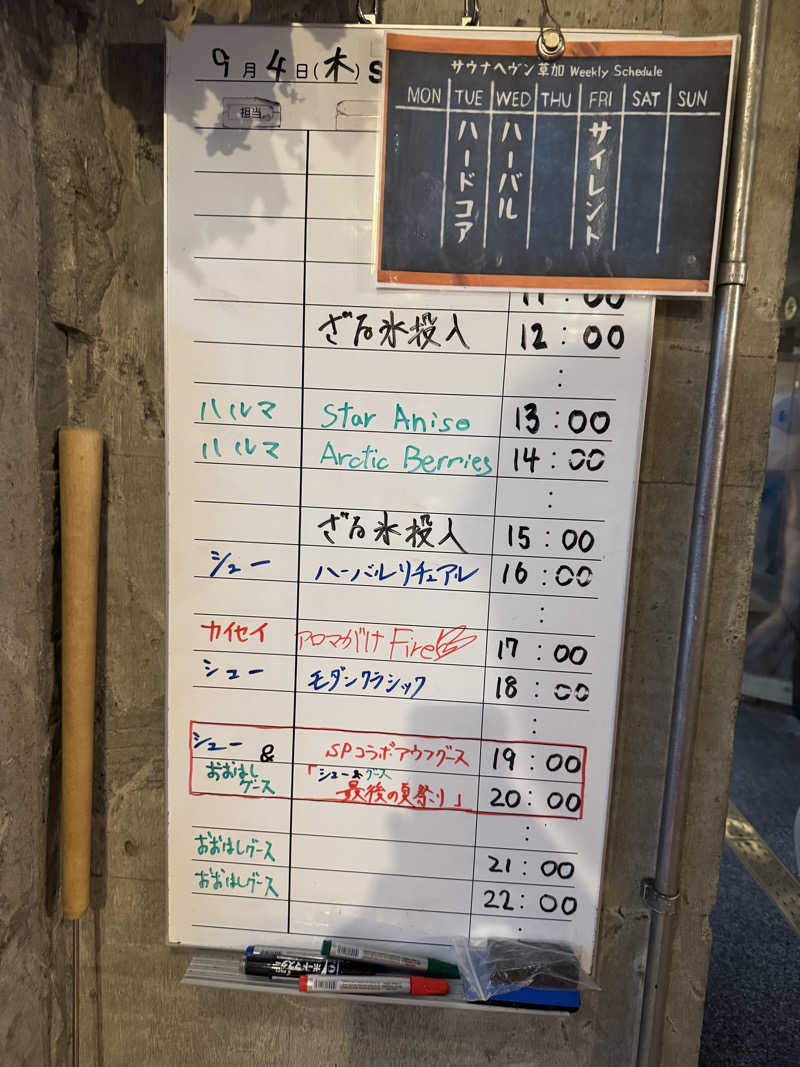 9月4日(木) S
サウナヘヴン草加 Weekly Schedule
MON TUE WED THU FRI SAT SUN
ハードコア
ハーバル
サイレント
担当
11:00
ざる氷投入 12:00
:
ハルマ Star Anise 13:00
ハルマ Arctic Berries 14:00
:
ざる氷投入 15:00
シュー ハーバルリチュアル 16:00
:
カイセイ アロマがけ Fire 17:00
シュー モダンクラシック 18:00
:
シュー & SPコラボアウフグース 19:00
おおはしグース 「シュー&グース 最後の夏祭り」 20:00
:
おおはしグース 21:00
おおはしグース 22:00
: